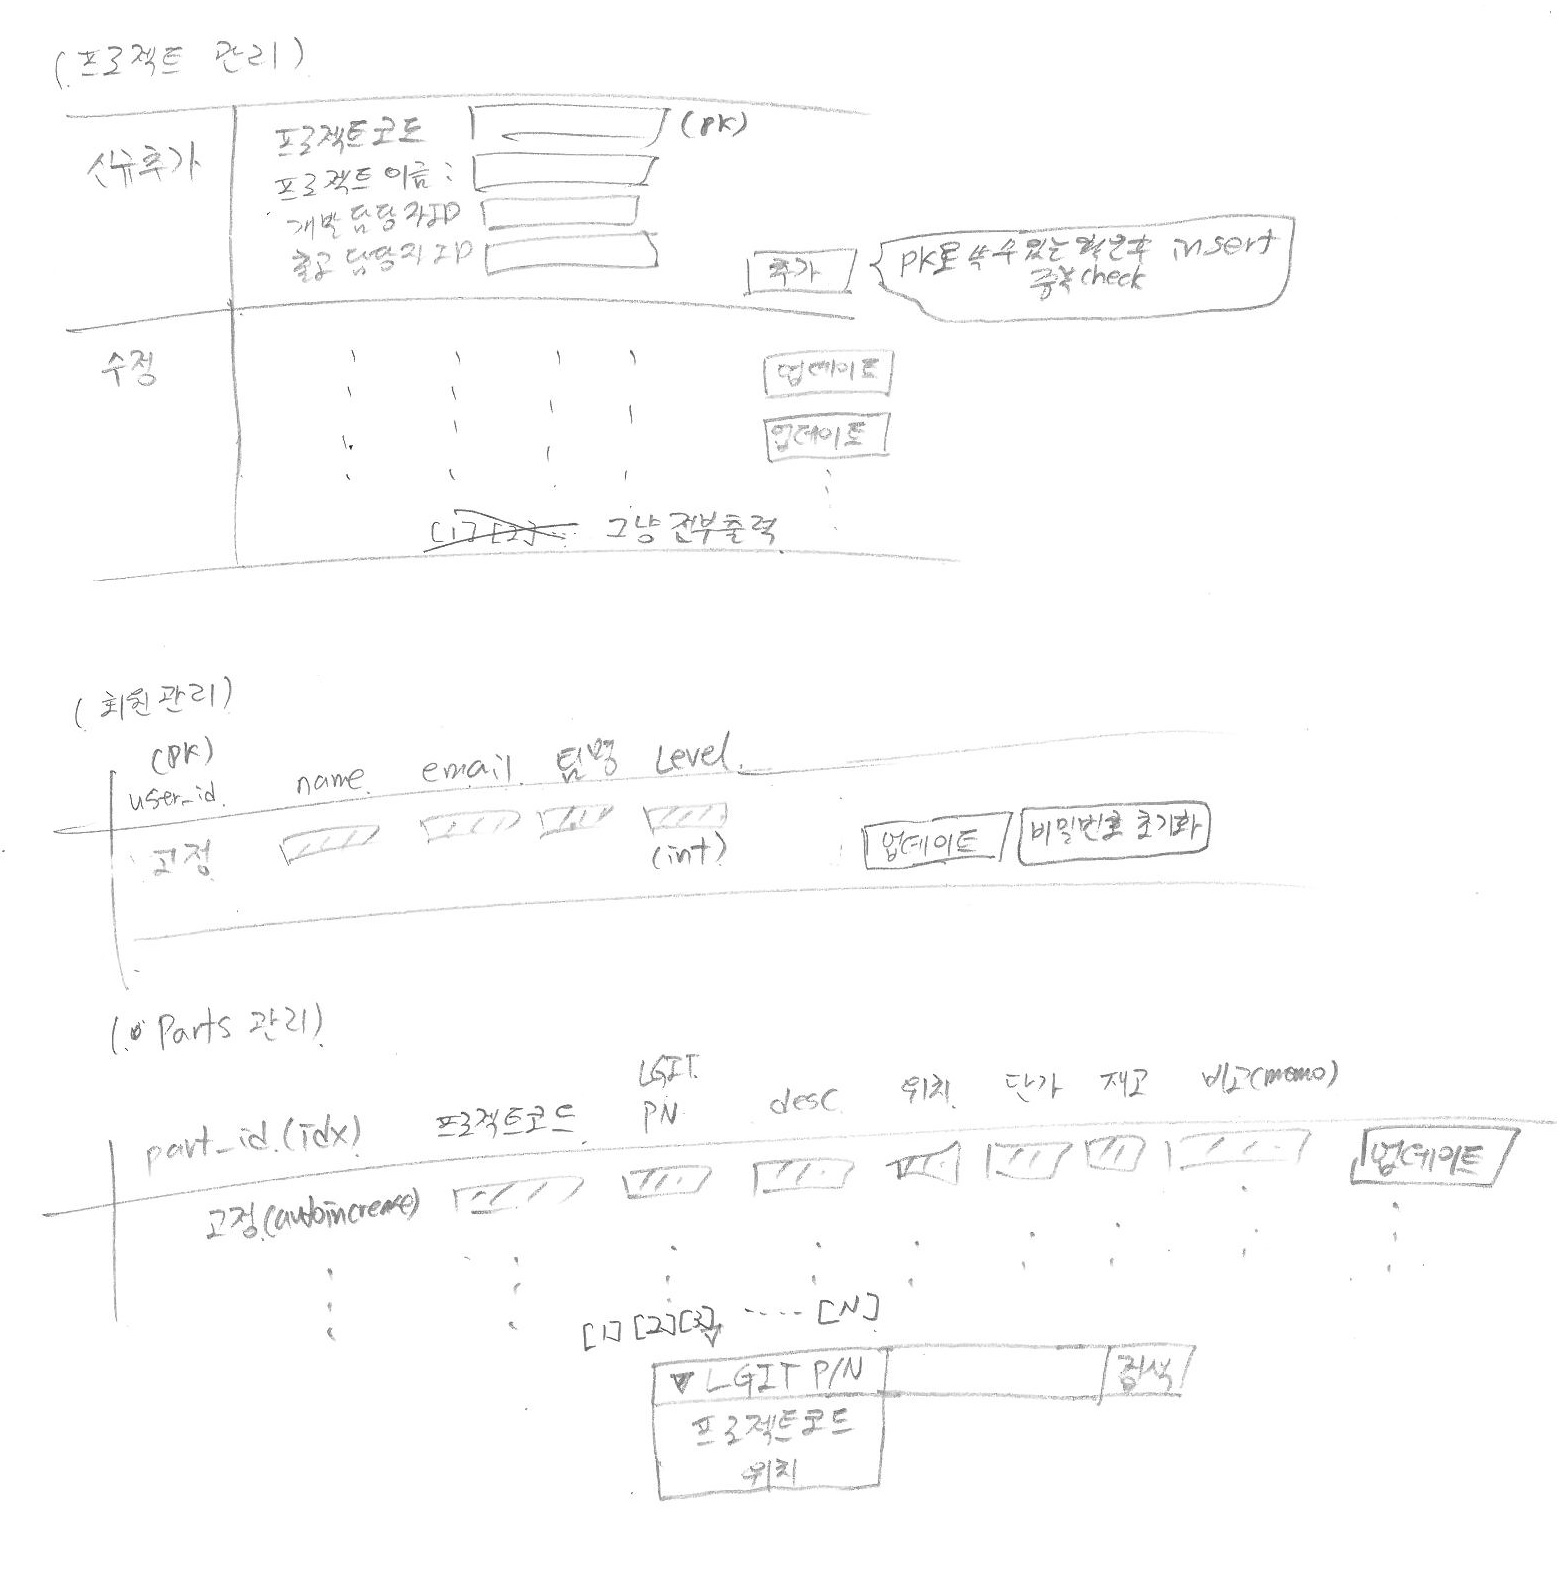 (프로젝트 관리)
신규추가
프로젝트코드 (PK)
프로젝트 이름 :
개발 담당자ID
출고 담당자 ID
추가
PK로 쓸 수 있는 insert
중복check
수정
업데이트
업데이트
[1] [2] ... 그냥 전부출력
(회원관리)
(PK)
user_id. name. email. 팀명 Level.
고정 (int) 업데이트 비밀번호 초기화
(Parts 관리)
part_id.(idx) 프로젝트코드 LGIT PN. desc. 위치. 단가 재고 비고(memo)
고정(autoincreme) 업데이트
[1] [2] [3] ..... [N]
▼ LGIT P/N 검색
프로젝트코드
위치